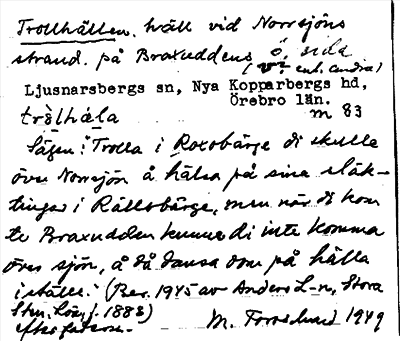 Trollhällen. häll vid Norrsjöns
strand. på Braxuddens ö. sida
(v? enl. andra)
Ljusnarsbergs sn, Nya Kopparbergs hd,
Örebro län.
m 83
trò̀lhäla
Sägen: "Trolla i Roxobärge di skulle
över Norrsjön å hälsa på sine släk-
tinger i Rällsbärge, men när di kom
te Braxudden kunne di inte komma
över sjön, å då dansa dom på hälla
i ställe." (Ber. 1945 av Anders L-n, Stora
Sten, Lös, f. 1888)
efter fadern. M. 1949